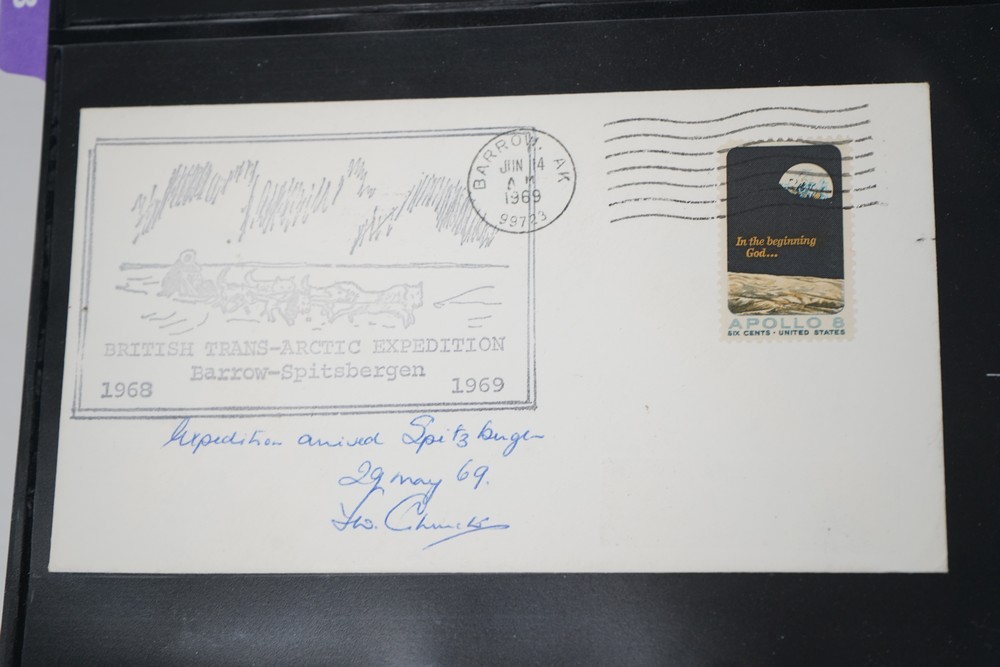 BARROW, AK
JUN 14
A M
1969
99723
In the beginning
God...
APOLLO 8
SIX CENTS · UNITED STATES
BRITISH TRANS-ARCTIC EXPEDITION
Barrow-Spitsbergen
1968 1969
Expedition arrived Spitzbergen
29 may 69.